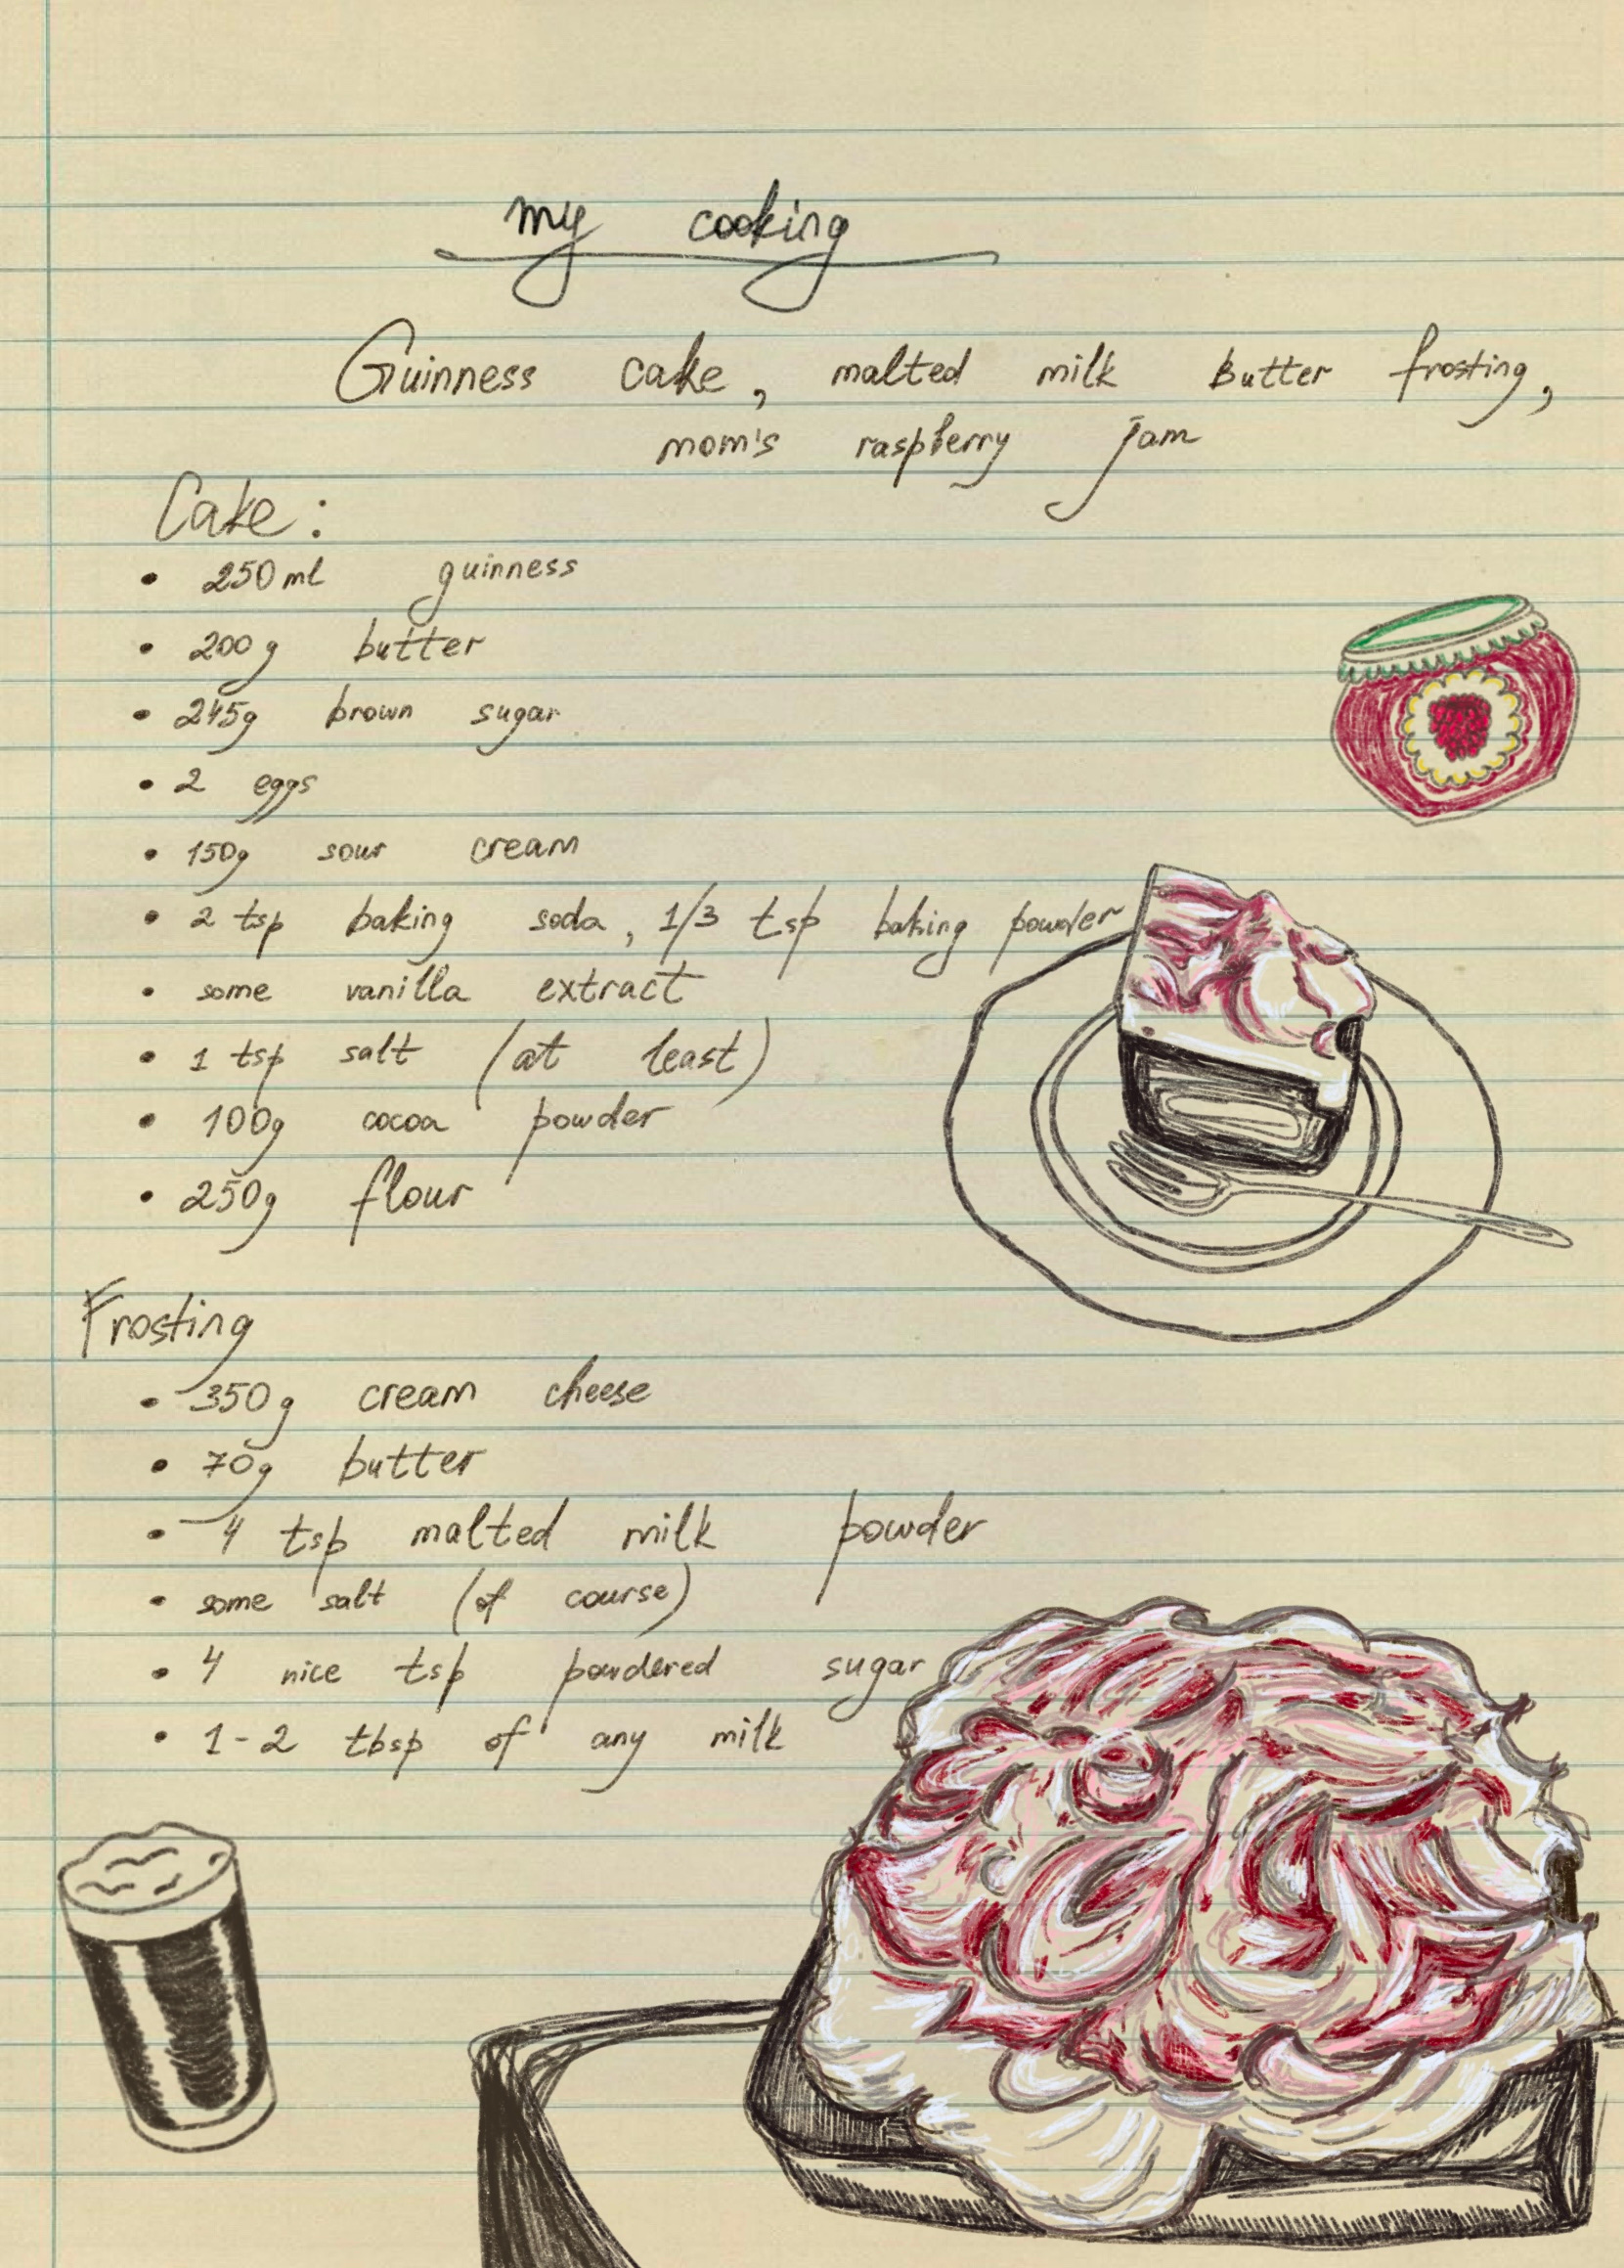 my cooking
Guinness cake, malted milk butter frosting,
mom's raspberry jam
Cake:
• 250ml guinness
• 200g butter
• 245g brown sugar
• 2 eggs
• 150g sour cream
• 2 tsp baking soda, 1/3 tsp baking powder
• some vanilla extract
• 1 tsp salt (at least)
• 100g cocoa powder
• 250g flour
Frosting
• 350g cream cheese
• 70g butter
• 4 tsp malted milk powder
• some salt (of course)
• 4 nice tsp powdered sugar
• 1-2 tbsp of any milk